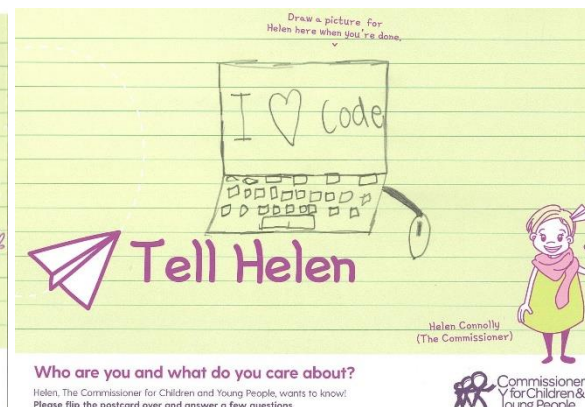 Draw a picture for
Helen here when you're done.
I ♡ Code
Tell Helen
Helen Connolly
(The Commissioner)
Who are you and what do you care about?
Helen, The Commissioner for Children and Young People, wants to know!
Please flip the postcard over and answer a few questions.
Commissioner
for Children &
Young People